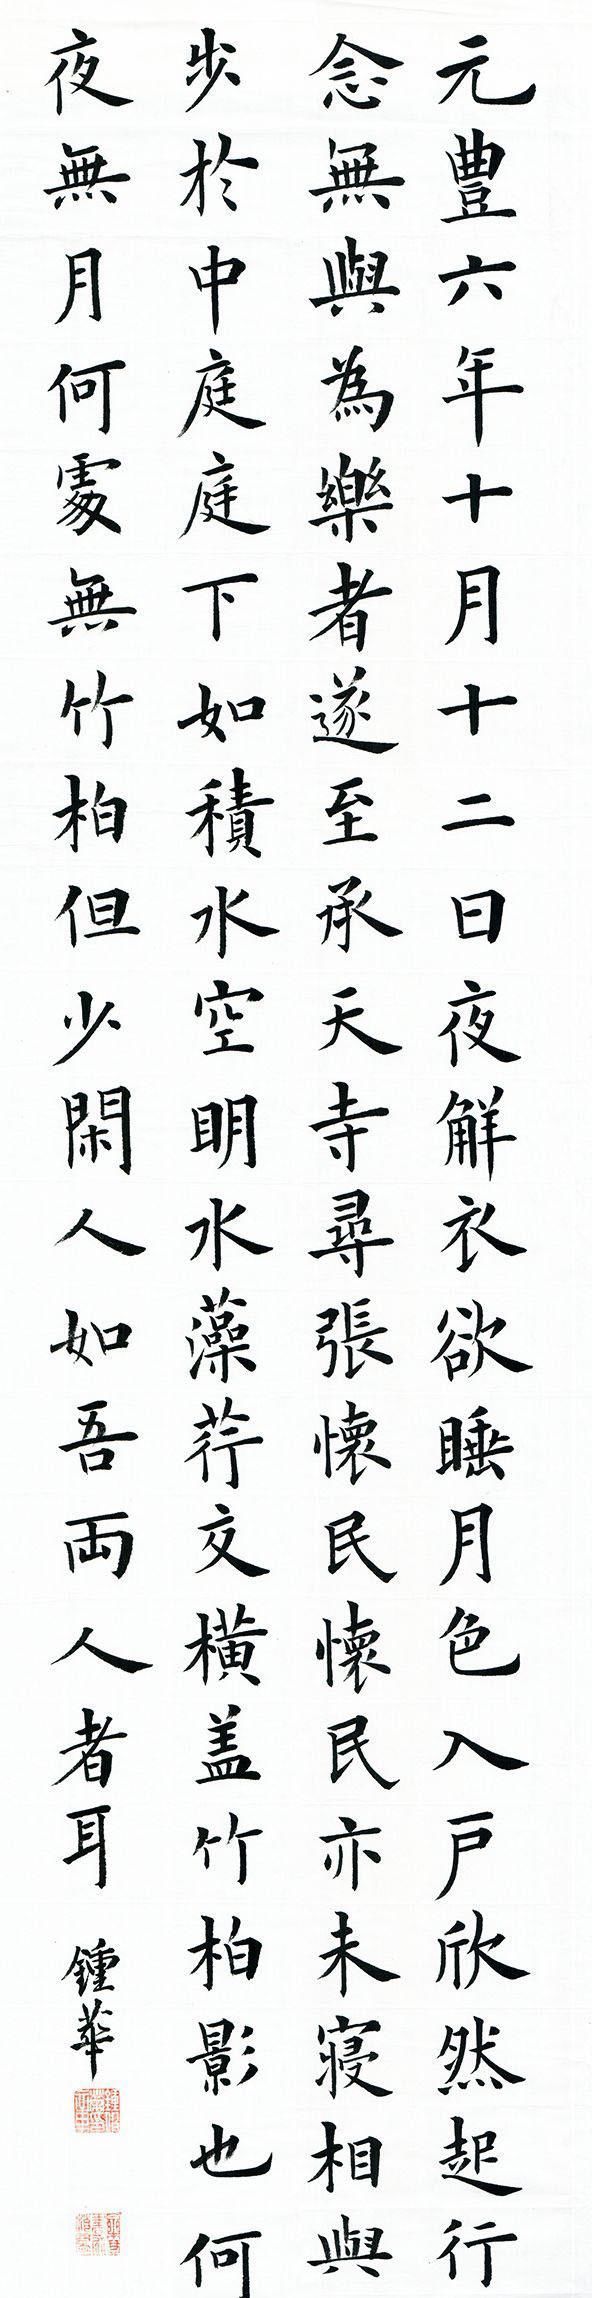 元豐六年十月十二日夜解衣欲睡月色入戶欣然起行
念無與為樂者遂至承天寺尋張懷民懷民亦未寢相與
步於中庭庭下如積水空明水藻荇交橫盖竹柏影也何
夜無月何處無竹柏但少閑人如吾両人者耳
鍾華